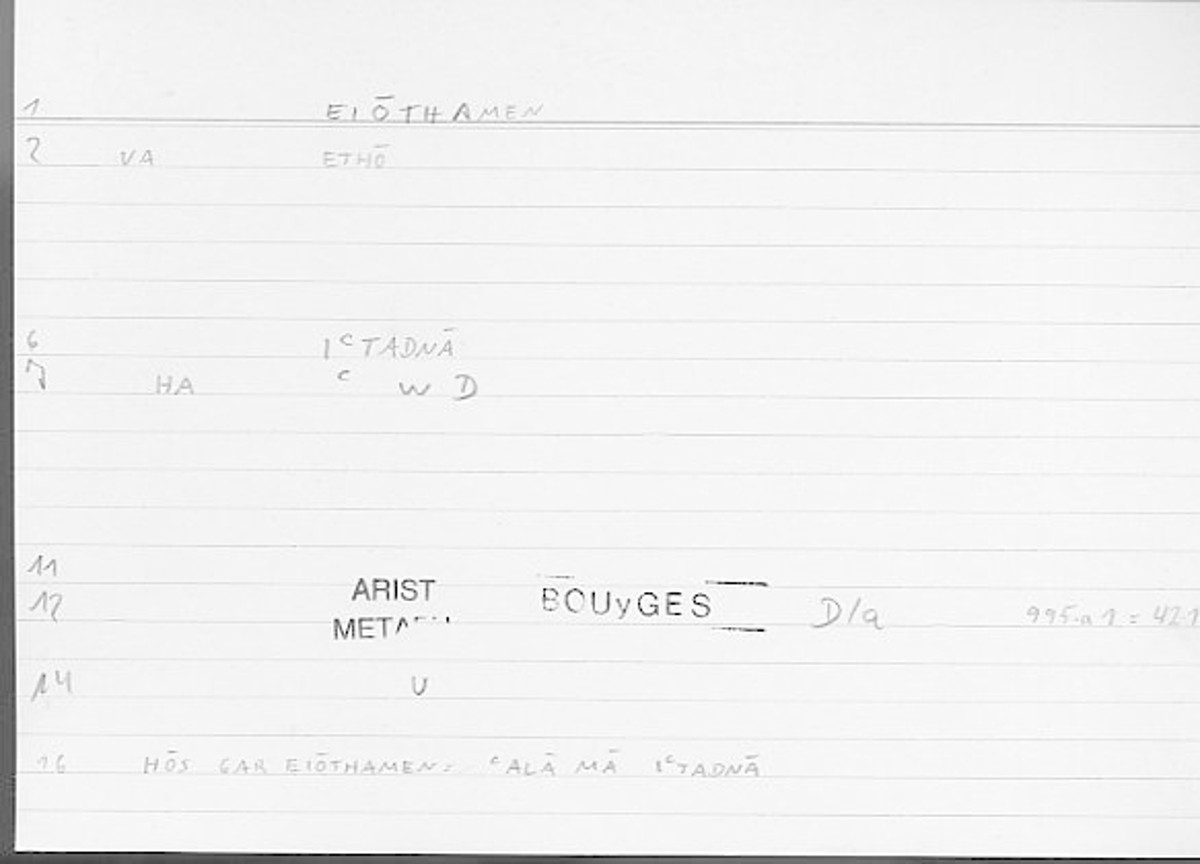 1 EIŌTHAMEN
2 VA ETHŌ
6 IᶜTADNĀ
7 HA ᶜ W D
11
ARIST
12 BOUyGES D/a 995.a1 = 42.1
14 U
16 HŌS GAR EIŌTHAMEN: ᶜALĀ MĀ IᶜTADNĀ